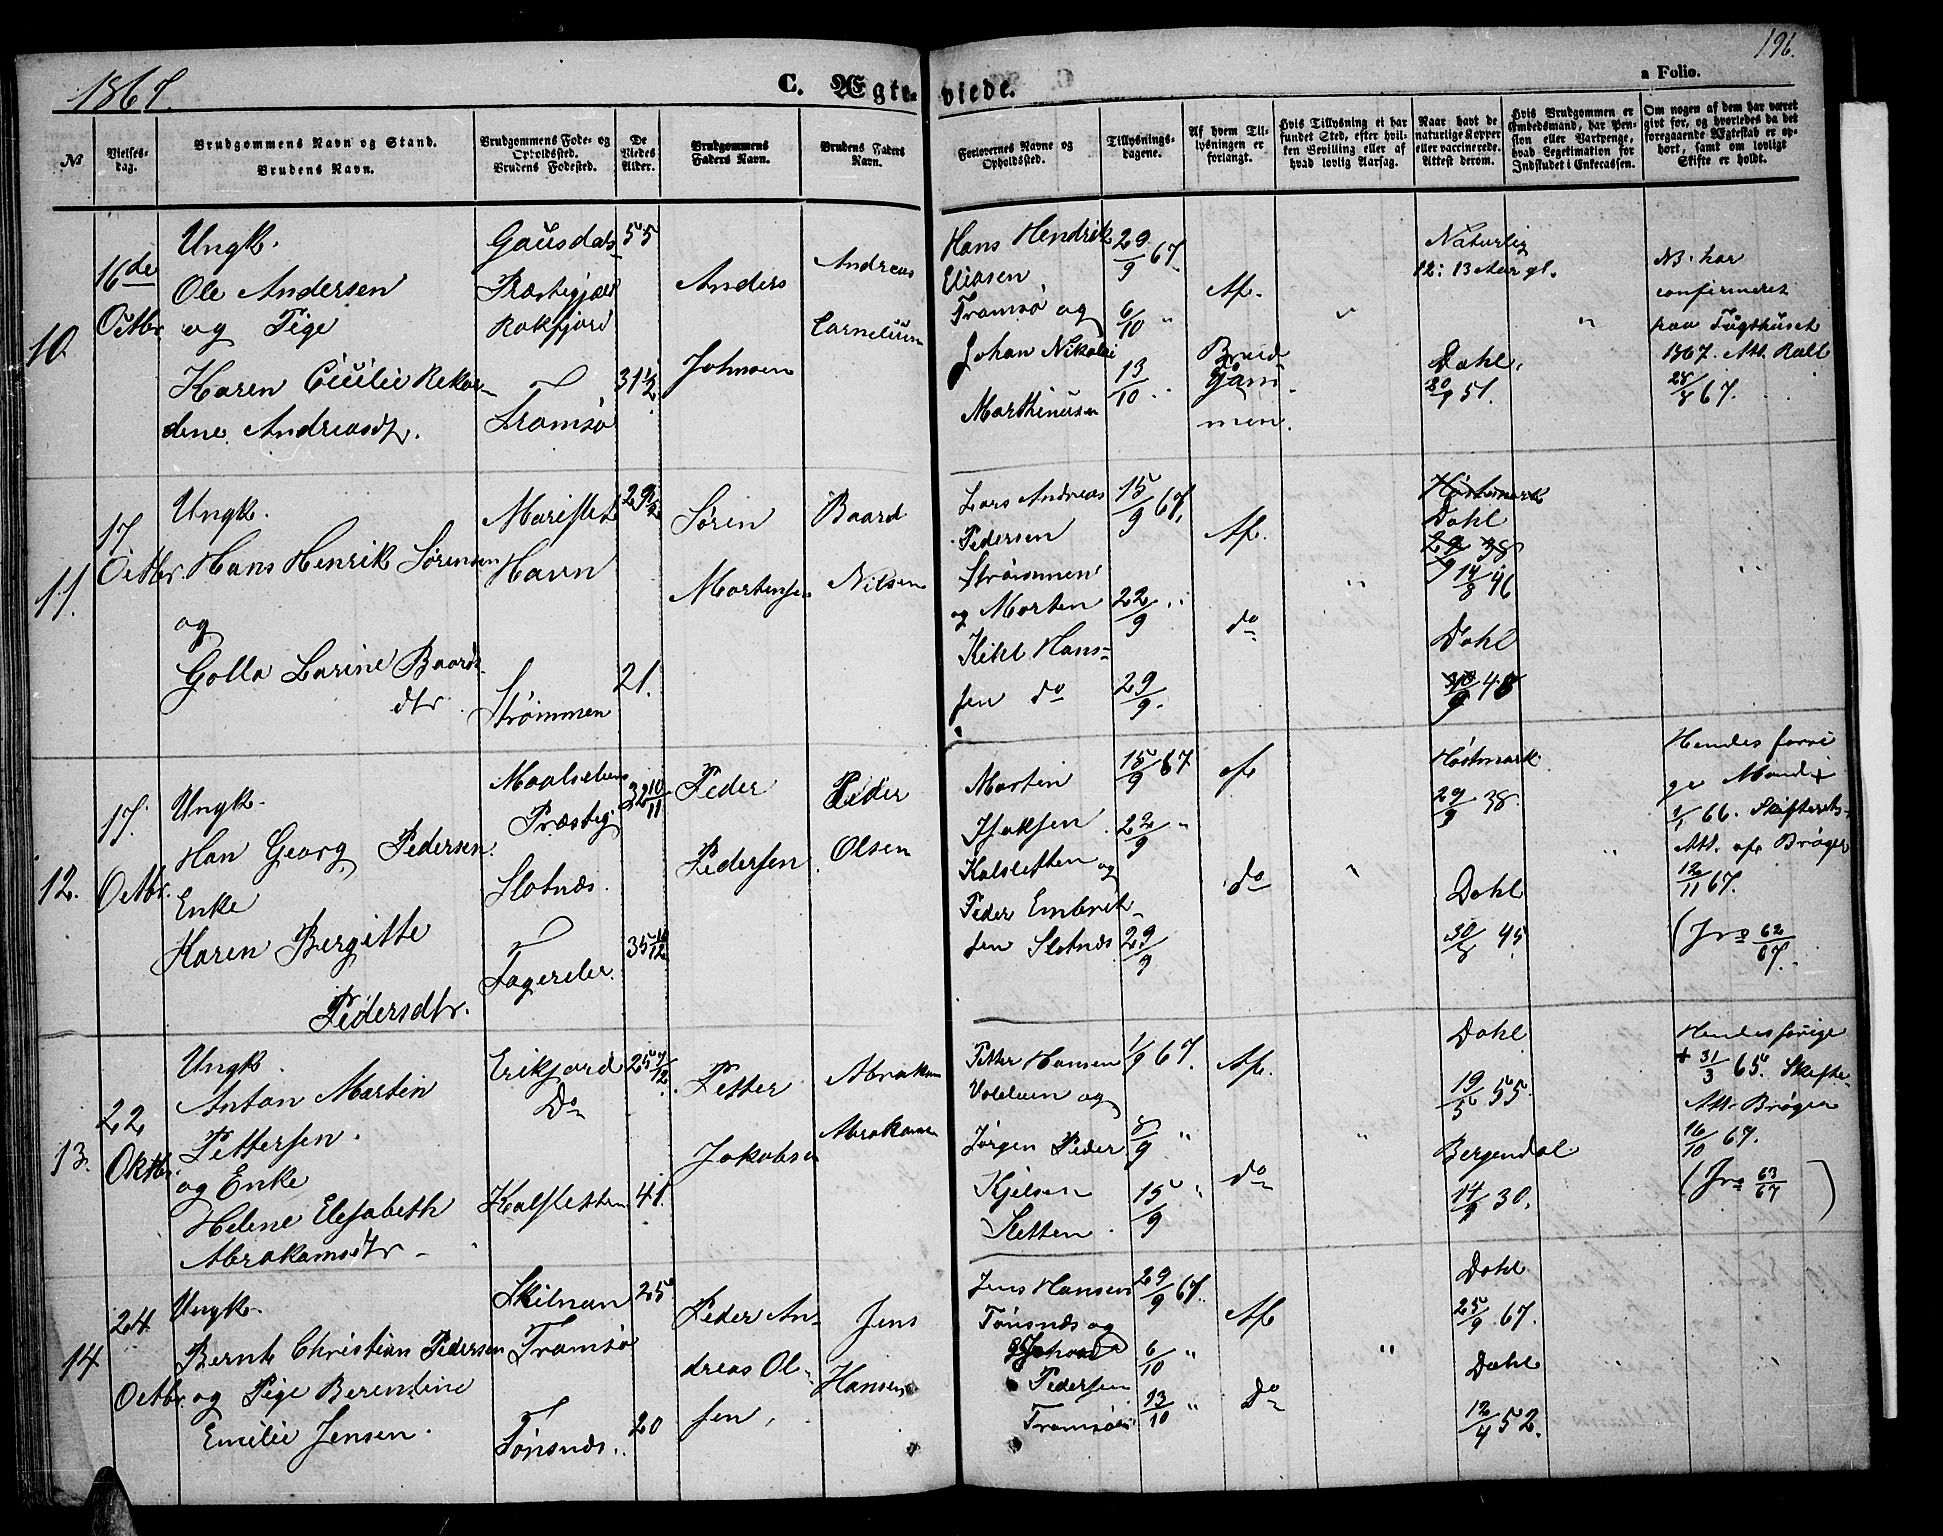 1867.
C. Ægte-
viede.
196.
a Folio.
No
Vielses-
dag.
Brudgommens Navn og Stand.
Brudens Navn.
Brudgommens Føde- og
Opholdssted.
Brudens Fødested.
De
Viedes
Alder.
Brudgommens
Faders Navn.
Brudens Faders
Navn.
Forlovernes Navne og
Opholdssted.
Tillysnings-
dagene.
Af hvem Til-
lysningen er
forlangt.
Hvis Tillysning ei har
fundet Sted, efter hvil-
ken Bevilling eller af
hvad lovlig Aarsag.
Naar havt de
naturlige Kopper
eller vaccinerede.
Attest derom.
Hvis Brudgommen er
Embedsmand, har Pen-
sion eller Vartpenge,
hvad Legitimation for
Indskudet i Enkecassen.
Om nogen af dem har været
givt før, og hvorledes da det
foregaaende Ægteskab er op-
hørt, samt om lovligt
Skifte er holdt.
10.
16de
Octbr.
Ungk.
Ole Andersen
og Pige
Karen Cecilie Rekar-
dine Andreasdtr.
Gausdals
Præstegjæld
Rakfjord
Tromsø
55
31 1/2
Anders
Johnsen
Andreas
Cornelius
Hans Hendrik
Eliasen
Tromsø og
Johan Nikolai
Marthinusen
29/9 67.
6/10 "
13/10 "
Af.
Brud
gom
men.
"
Naturlig
12 : 13 Aar gl.
Dahl.
20/9 51.
"
NB. har
confirmeret
paa Tugthuset
1867. Att. Rall
28/8 67.
11.
17
Octbr.
Ungk.
Hans Henrik Sørensen
og
Golla Larine Baards
dtr.
Havn
Strømmen
29
21.
Søren
Mortensen
Baard
Nilsen
Lars Andreas
Pedersen
Strømmen
og Morten
Kihl Hans-
sen do
15/9 67.
22/9 "
29/9.
Af.
do
"
Høstmark
Dahl
29/9 38
14/8 46
Dahl
9 48
"
12.
17.
Octbr.
Ungk.
Han Georg Pedersen.
Enke
Karen Bergitte
Pedersdtr.
Maalselvens
Præsteg.
Slotnæs.
Fagereler.
32 10/11
35 10/12
Peder
Pedersen
Peder
Olsen
Morten
Isaksen
Kalsletten og
Peder Embrik-
sen Slotnæs
15/9 67
22/9 "
29/9
af
do
"
Høstmark
29/9 38.
Dahl
30/8 45.
"
Hendes forri
ge Mand +
1/1 66. Skifterets-
Att. af Brøger
12/11 67.
(Jro 62/67.
13.
22
Oktbr.
Ungk.
Anton Martin
Pettersen.
og Enke
Helene Elesabeth
Abrahamsdtr
Erikjord
Do
Kalsletten
25 7/12
41.
Petter
Jakobsen
Abraham
Abrahamsen
Petter Hansen
Jørgen Peder
Kjelsen
Sletten.
1/9 67.
8/9 "
15/9 "
Af.
do
"
Dahl
19/5 55.
Bergendal
14/9 30.
Hendes forige
+ 31/3 65. Skifte-
Att. Brøger
16/10 67.
(Jro 63/67)
14
24
Octbr.
Ungk.
Bernt Christian Pedersen
og Pige Berentine
Emilie Jensen.
Tromsø
Tønsnæs.
25
20
Peder An-
dreas Ol-
sen,
Jens
Hansen
Jens Hansen
Tønsnæs og
Pedersen
Tromsøen
29/9 67.
6/10 "
13/10 "
Af
Do
"
Dahl
25/9 67.
Dahl
12/4 52.